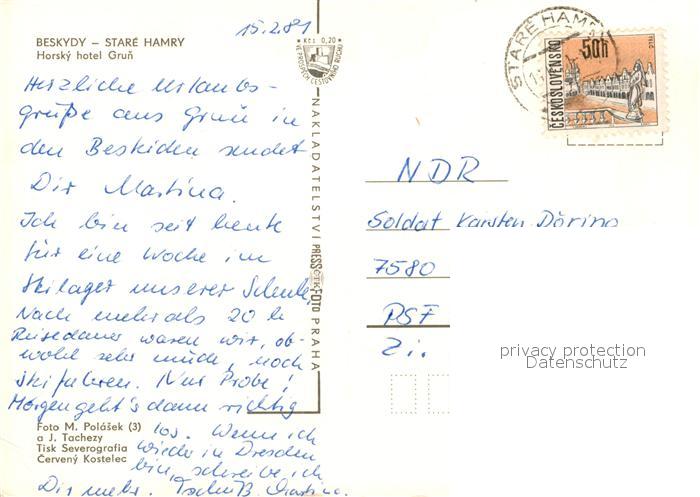 15.2.81
BESKYDY – STARÉ HAMRY
Horský hotel Gruň
Herzliche Urlaubs-
grüße aus Gruň in
den Beskiden sendet
Dir Martina.
Ich bin seit heute
für eine Woche im
Skilager unserer Schule.
Nach mehr als 20 h
Reisedauer waren wir, ob-
wohl sehr müde, noch
Skifahren. Nur Probe!
Morgen geht's dann richtig
los. Wenn ich
wieder in Dresden
bin, schreibe ich
Dir mehr. Tschüß Martina
Foto M. Polášek (3)
a J. Tachezy
Tisk Severografia
Červený Kostelec
Kčs 0,20
VE PROSPĚCH CESTOVNÍHO RUCHU
NAKLADATELSTVÍ PRESSFOTO PRAHA
ČTK
STARÉ HAMRY
ČESKOSLOVENSKO
50h
TELČ
NDR
Soldat Karsten Döring
7580
PSF
Zi.
privacy protection
Datenschutz